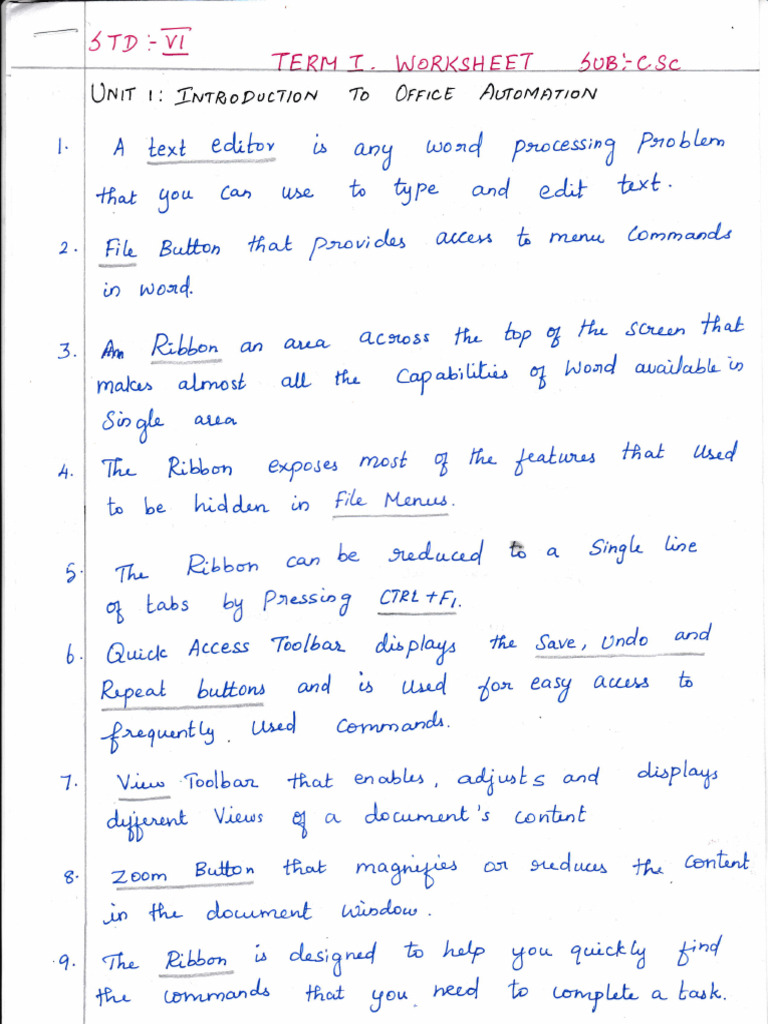 STD:- VI
TERM I. WORKSHEET SUB:- CSC
UNIT 1: INTRODUCTION TO OFFICE AUTOMATION
1. A text editor is any word processing Problem
that you can use to type and edit text.
2. File Button that provides access to menu Commands
in word.
3. An Ribbon an area across the top of the screen that
makes almost all the Capabilities of Word available in
Single area
4. The Ribbon exposes most of the features that Used
to be hidden in File Menus.
5. The Ribbon can be reduced to a Single line
of tabs by Pressing CTRL+F1.
6. Quick Access Toolbar displays the Save, Undo and
Repeat buttons and is Used for easy access to
frequently Used Commands.
7. View Toolbar that enables, adjusts and displays
different Views of a document's content
8. Zoom Button that magnifies or reduces the Content
in the document Window.
9. The Ribbon is designed to help you quickly find
the commands that you need to complete a task.